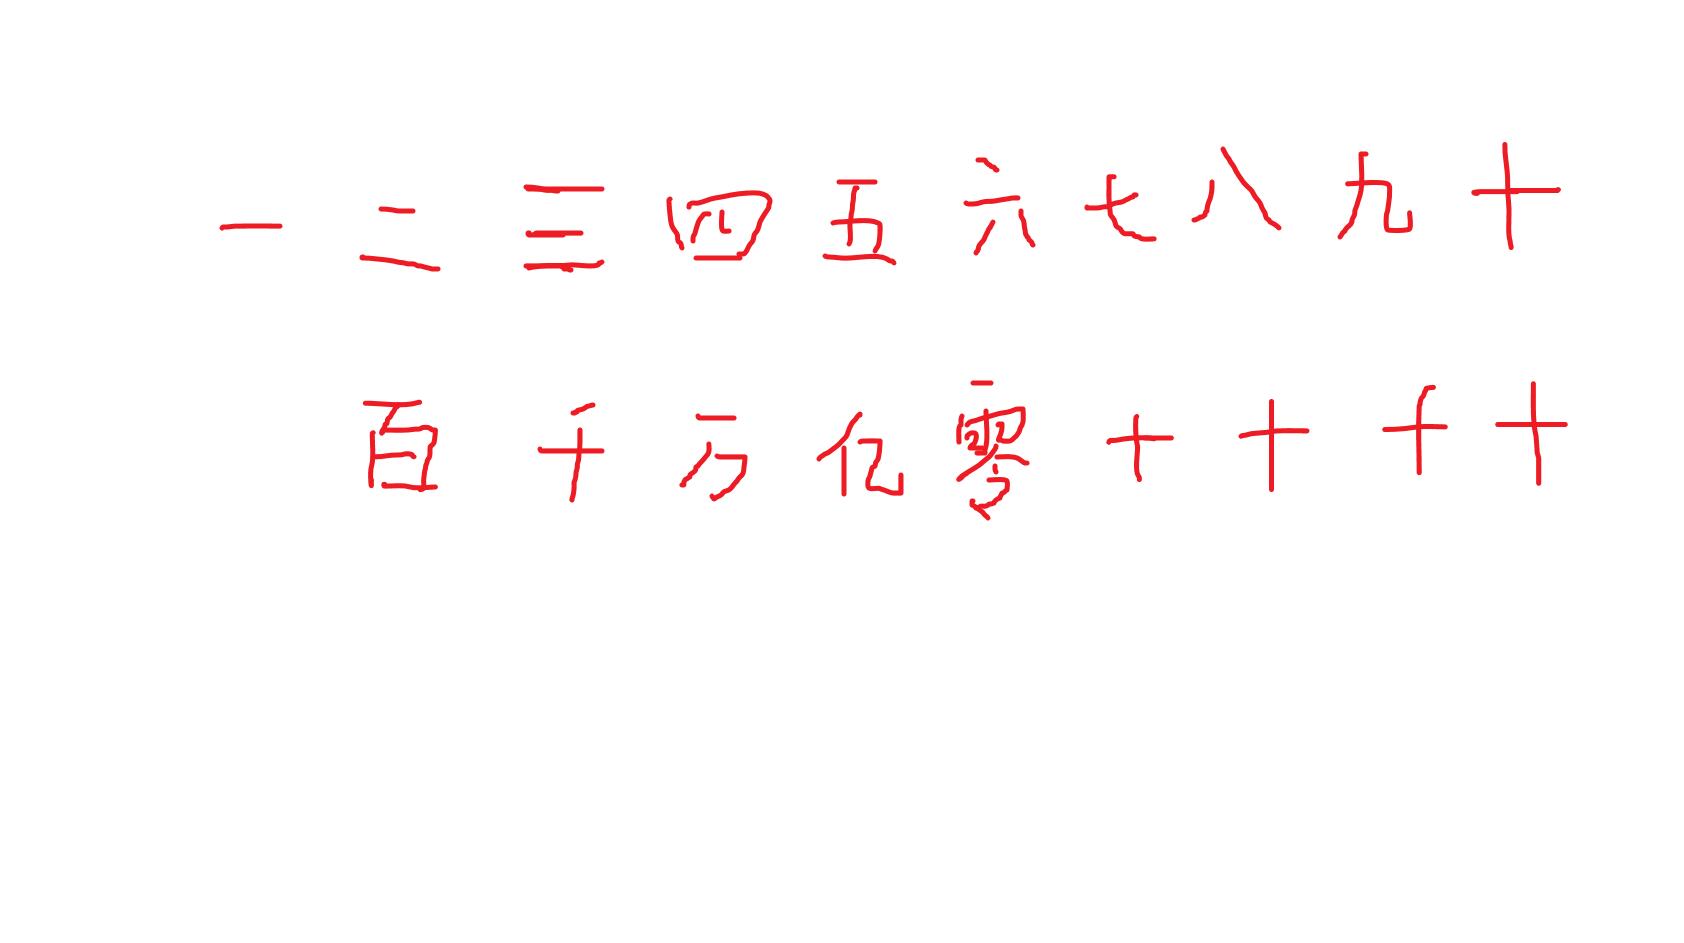 一 二 三 四 五 六 七 八 九 十
百 千 万 亿 零 十 十 十 十